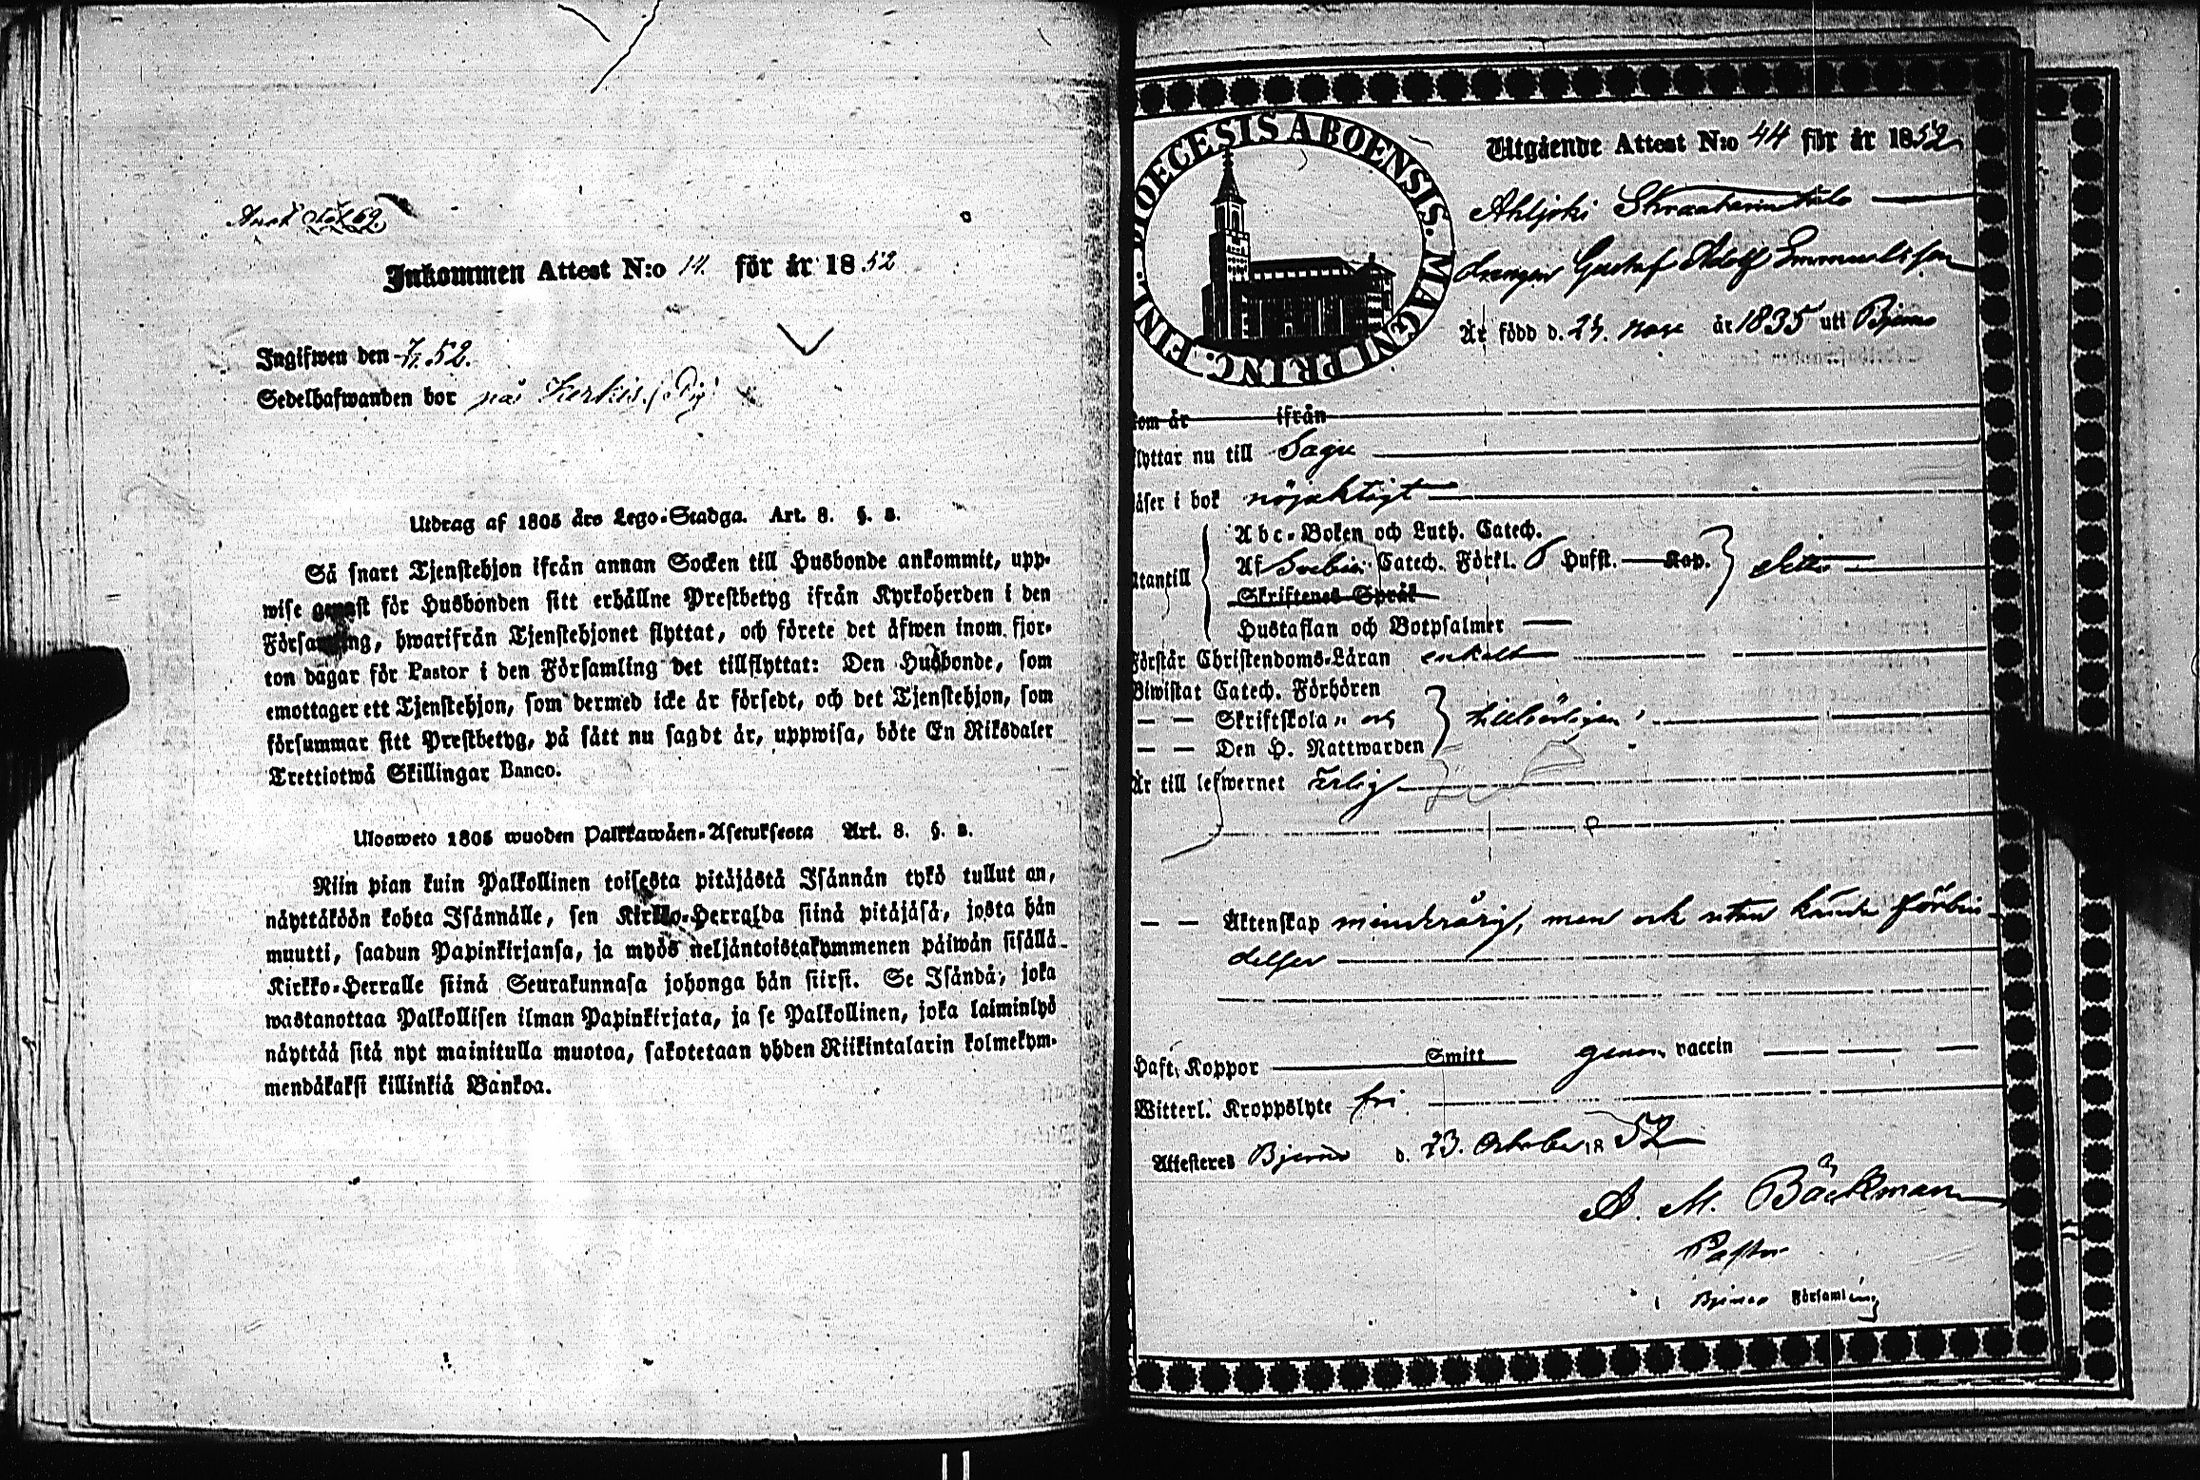 Inkommen Attest N:o 14. för år 1852
Ingifwen den 7/11 52.
Sedelhafwanden bor på
Utdrag af 1805 års Lego-Stadga. Art. 8. §. 2.
Så snart Tjenstehjon ifrån annan Socken till Husbonde ankommit, upp-
wise genast för Husbonden sitt erhållne Prestbetyg ifrån Kyrkoherden i den
Församling, hwarifrån Tjenstehjonet flyttat, och förete det äfwen inom fjor-
ton dagar för Pastor i den Församling det tillflyttat: Den Husbonde, som
emottager ett Tjenstehjon, som dermed icke är försedt, och det Tjenstehjon, som
försummar sitt Prestbetyg, på sätt nu sagdt är, uppwisa, böte En Riksdaler
Trettiotwå Skillingar Banco.
Ulosweto 1805 wuoden Palkkawäen-Asetuksesta Art. 8. §. 2.
Niin pian kuin Palkollinen toisesta pitäjästä Isännän tykö tullut on,
näyttäköön kohta Isännälle, sen Kirkko-Herralda siinä pitäjäsä, josta hän
muutti, saadun Papinkirjansa, ja myös neljäntoistakymmenen päiwän sisällä
Kirkko-Herralle siinä Seurakunnasa johonga hän siirsi. Se Isändä, joka
wastanottaa Palkollisen ilman Papinkirjata, ja se Palkollinen, joka laiminlyö
näyttää sitä nyt mainitulla muotoa, sakotetaan yhden Riikintalarin kolmekym-
mendäkaksi killinkiä Bankoa.
DIOECESIS ABOENSIS. MAGNI PRINC. FINL.
Utgående Attest N:o 44 för år 1852
Ahljoki
Drängen Gustaf Adolf Emanuelsson
Är född d. 23. år 1835 uti Bjerno
som är ifrån
flyttar nu till Sagu
läser i bok nöjaktigt
Utantill
Abc-Boken och Luth. Catech.
Af Svebii Catech. Förkl. 5 Hufst. Kap.
Skriftenes Språk
Hustaflan och Botpsalmer
Förstår Christendoms-Läran enkelt
Biwistat Catech. Förhören
— — Skriftskolan och
— — Den H. Nattwarden
tillbörligen
Är till lefwernet ärlig
— — Äktenskap minderårig, men ock utan kända förbin-
delser
Haft Koppor Smitt genom vaccin
Witterl. Kroppslyte fri
Attesteres Bjerno d. 23. October 1852
A. M. Bäckman
Pastor
i Bjerno Församling